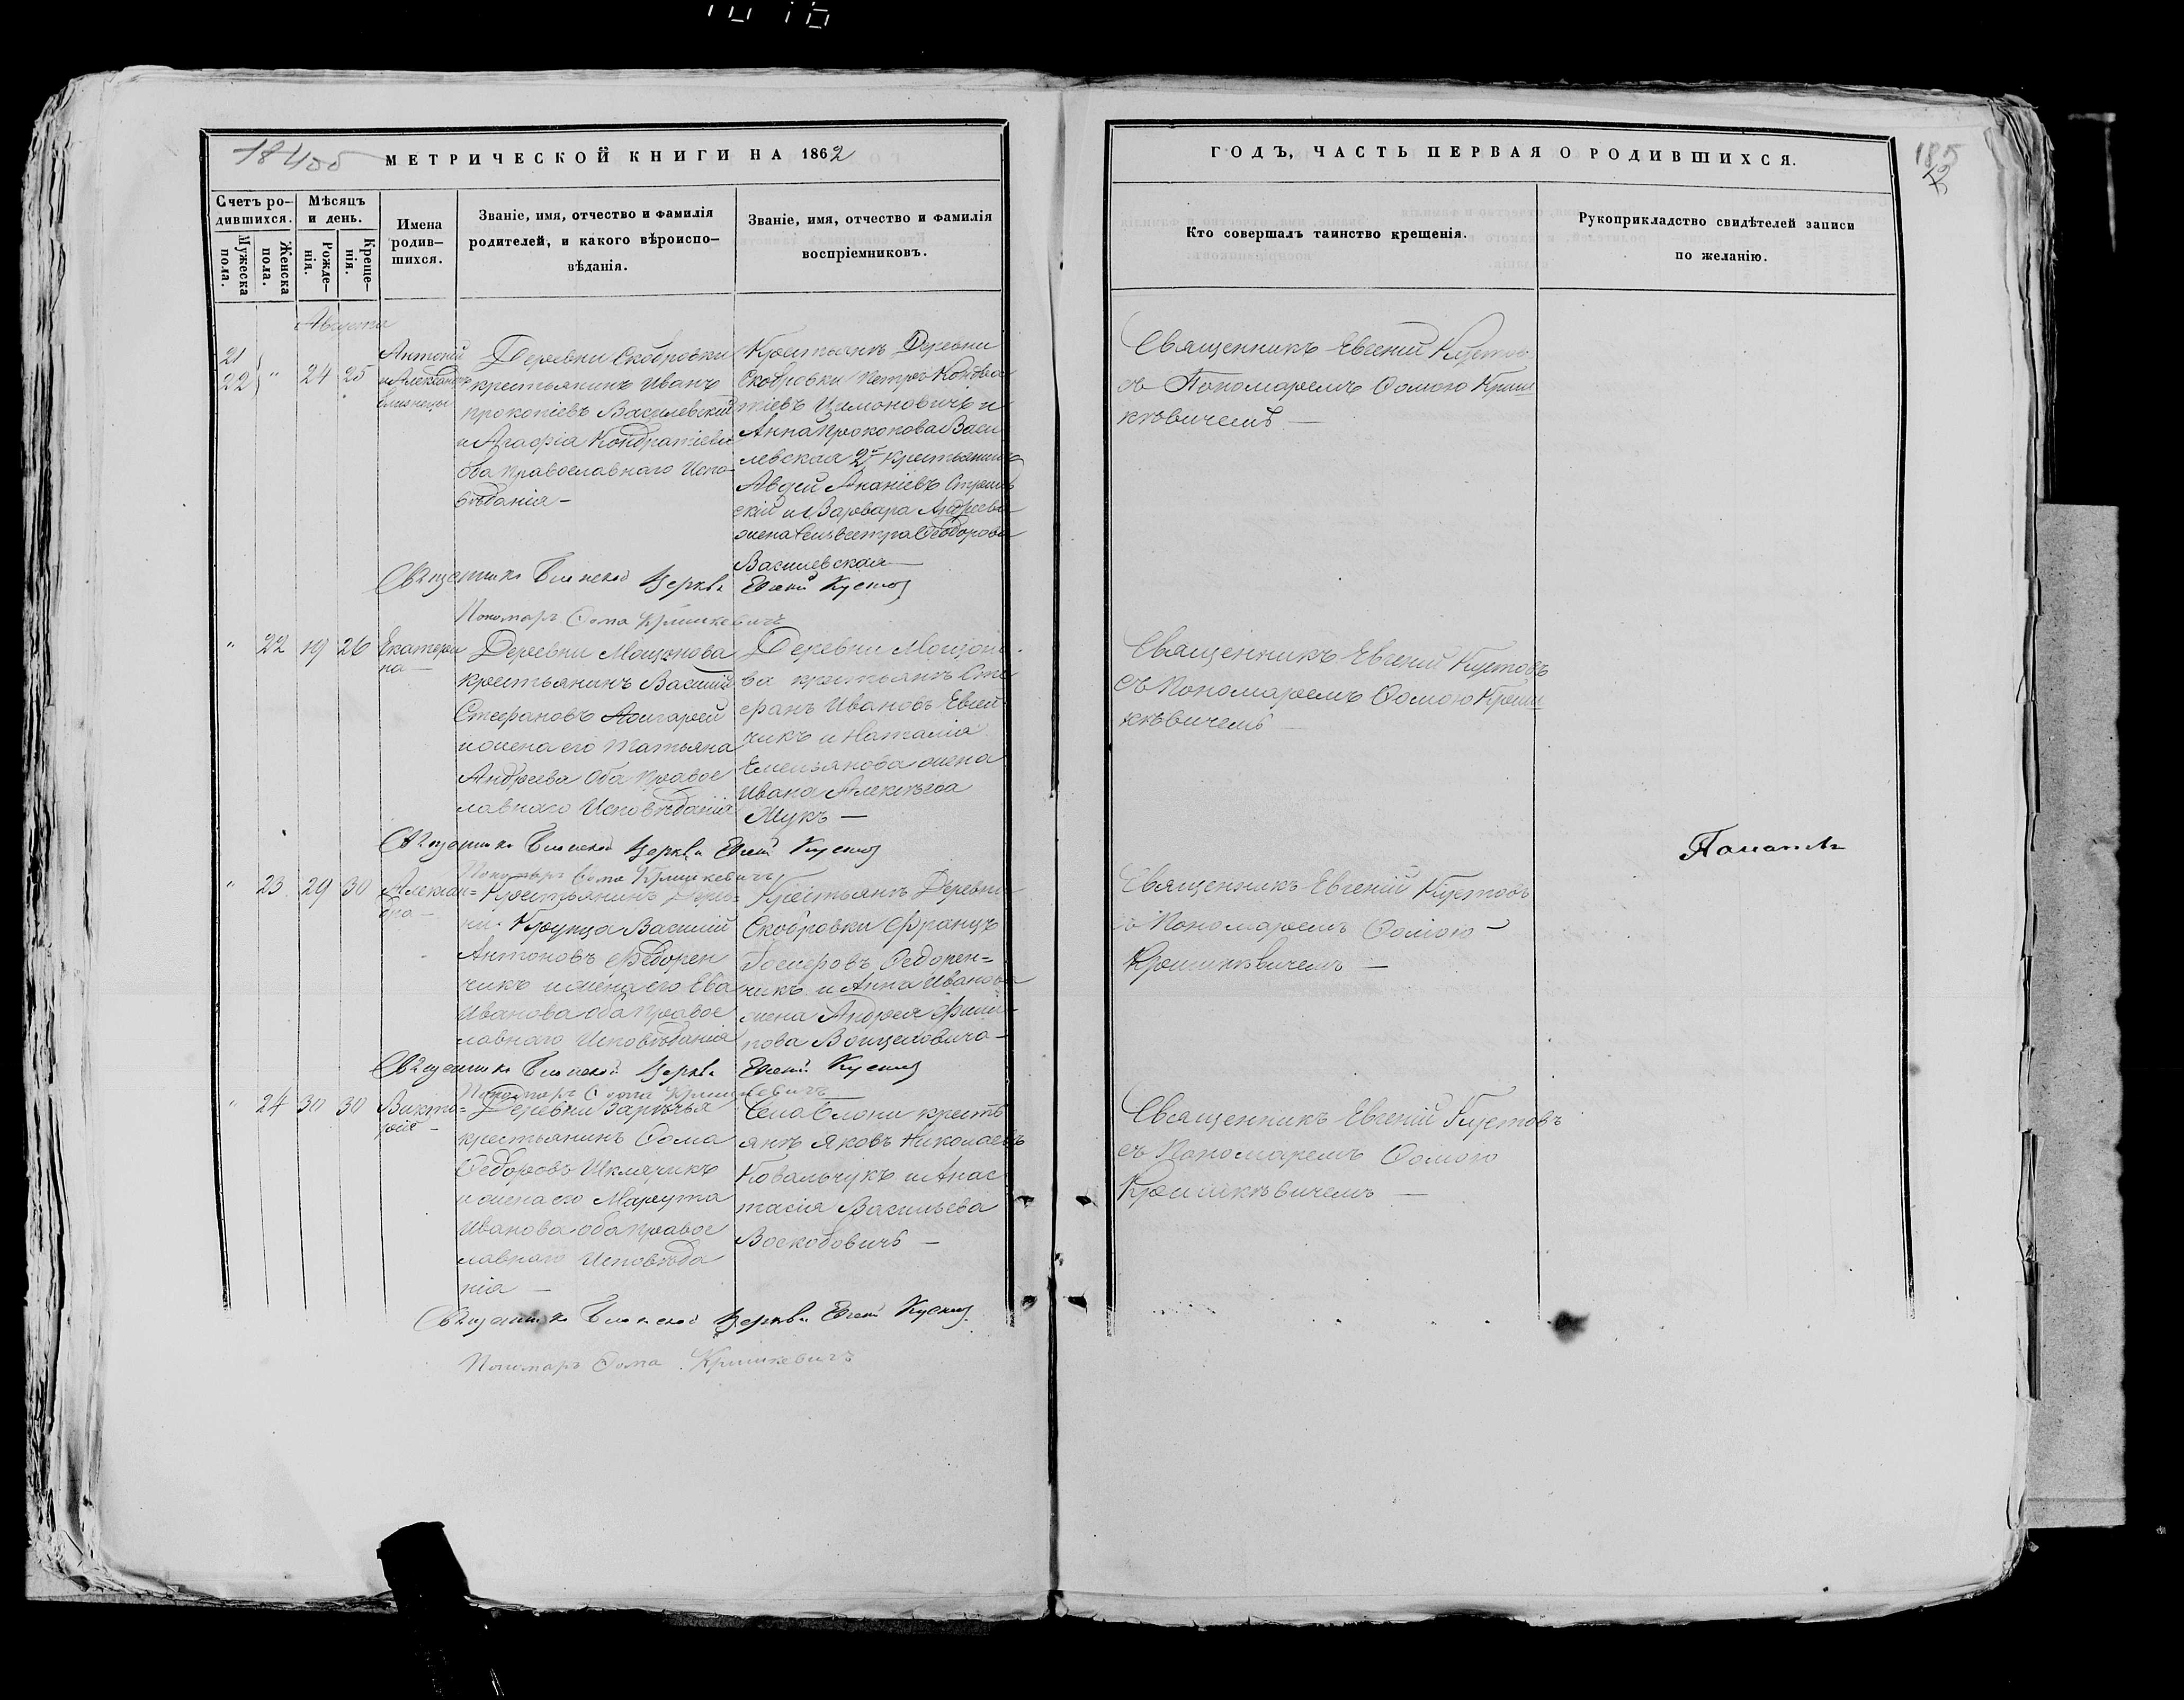 МЕТРИЧЕСКОЙ КНИГИ НА 1862
Счетъ ро-
дившихся.
Мужеска
пола.
Женска
пола.
Мѣсяцъ
и день.
Рожде-
нія.
Креще-
нія.
Имена
родив-
шихся.
Званіе, имя, отчество и фамилія
родителей, и какого вѣроиспо-
вѣданія.
Званіе, имя, отчество и фамилія
воспріемниковъ.
Августа
21
22 " 24 25
Антоній
и Александръ
близнецы
Деревни Скобровки
крестьянинъ Иванъ
Прокопіевъ Василевскій
и Агафія Кондратіева
оба православнаго Испо-
вѣданія –
Крестьянъ Деревни
Скобровки Петръ Кондра
тіевъ Цимоновичъ и
Анна Прокопова Васи
левская 2й Крестьянинъ
Авдей Ананіевъ
скій и Варвара Андреева
жена Селивестра Ѳеодорова
Василевская —
Священникъ Церкви Евгеній Кустов
Пономарь Ѳома Кришкевичъ
" 22 19 26
Екатери
на —
Деревни Мощонова
крестьянинъ Василій
Стефановъ
и жена его Татьяна
Андреева Оба Правос
лавнаго Исповѣданія
Деревни Мощоно
ва крестьянъ Сте
фанъ Ивановъ Евсей
чикъ и Наталія
Емельянова жена
Ивана Алексѣева
Мукъ —
Священникъ Церкви Евгеній Кустов
Пономарь Ѳома Кришкевичъ
" 23 29 30
Алексан=
дра —
Крестьянинъ Дерев=
ни Крупца Василій
Антоновъ Ѳедорен
чикъ и жена его Ева
Иванова оба Правос
лавнаго Исповѣданія
Крестьянъ Деревни
Скобровки Францъ
Ѳедорен=
чикъ и Анна Иванова
жена Андрея Филип
пова Войцеховича –
Священникъ Церкви Евгеній Кустов
Пономарь Ѳома Кришкевичъ
" 24 30 30
Викто=
рія –
Деревни Зарѣчья
крестьянинъ Ѳома
Ѳедоровъ Шклярикъ
и жена его Марута
Иванова оба Правос
лавнаго Исповѣда
нія —
Села Блони кресть
янъ Яковъ Николаевъ
Ковальчукъ и Анас
тасія Васильева
Воскобовичъ —
Священникъ Церкви Евгеній Кустов
Пономарь Ѳома Кришкевичъ
ГОДЪ, ЧАСТЬ ПЕРВАЯ О РОДИВШИХСЯ.
185
Кто совершалъ таинство крещенія.
Рукоприкладство свидѣтелей записи
по желанію.
Священникъ Евгеній Кустовъ
съ Пономаремъ Ѳомою Криш
кѣвичемъ —
Священникъ Евгеній Кустовъ
съ Пономаремъ Ѳомою Криш
кѣвичемъ —
Священникъ Евгеній Кустовъ
съ Пономаремъ Ѳомою –
Кришкѣвичемъ —
Священникъ Евгеній Кустовъ
съ Пономаремъ Ѳомою
Кришкѣвичемъ —